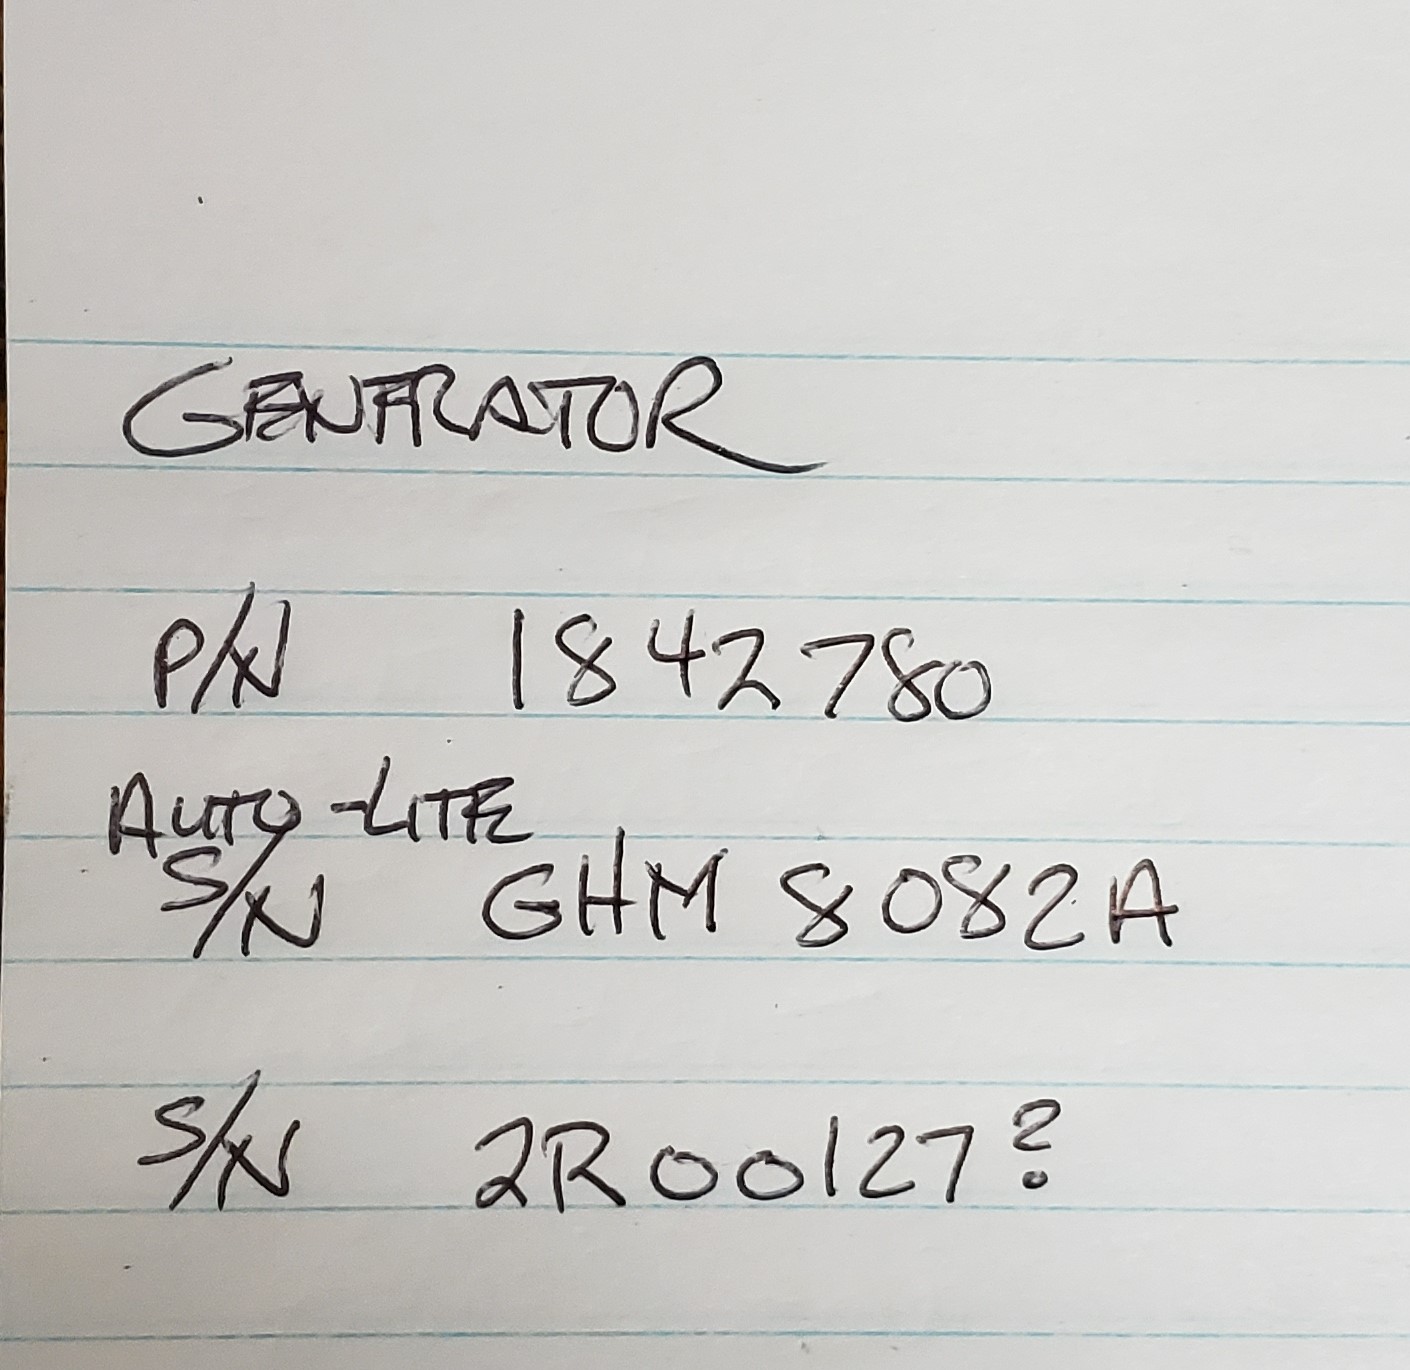 GENERATOR
P/N 1842780
AUTO-LITE
S/N GHM 8082A
S/N 2R00127?